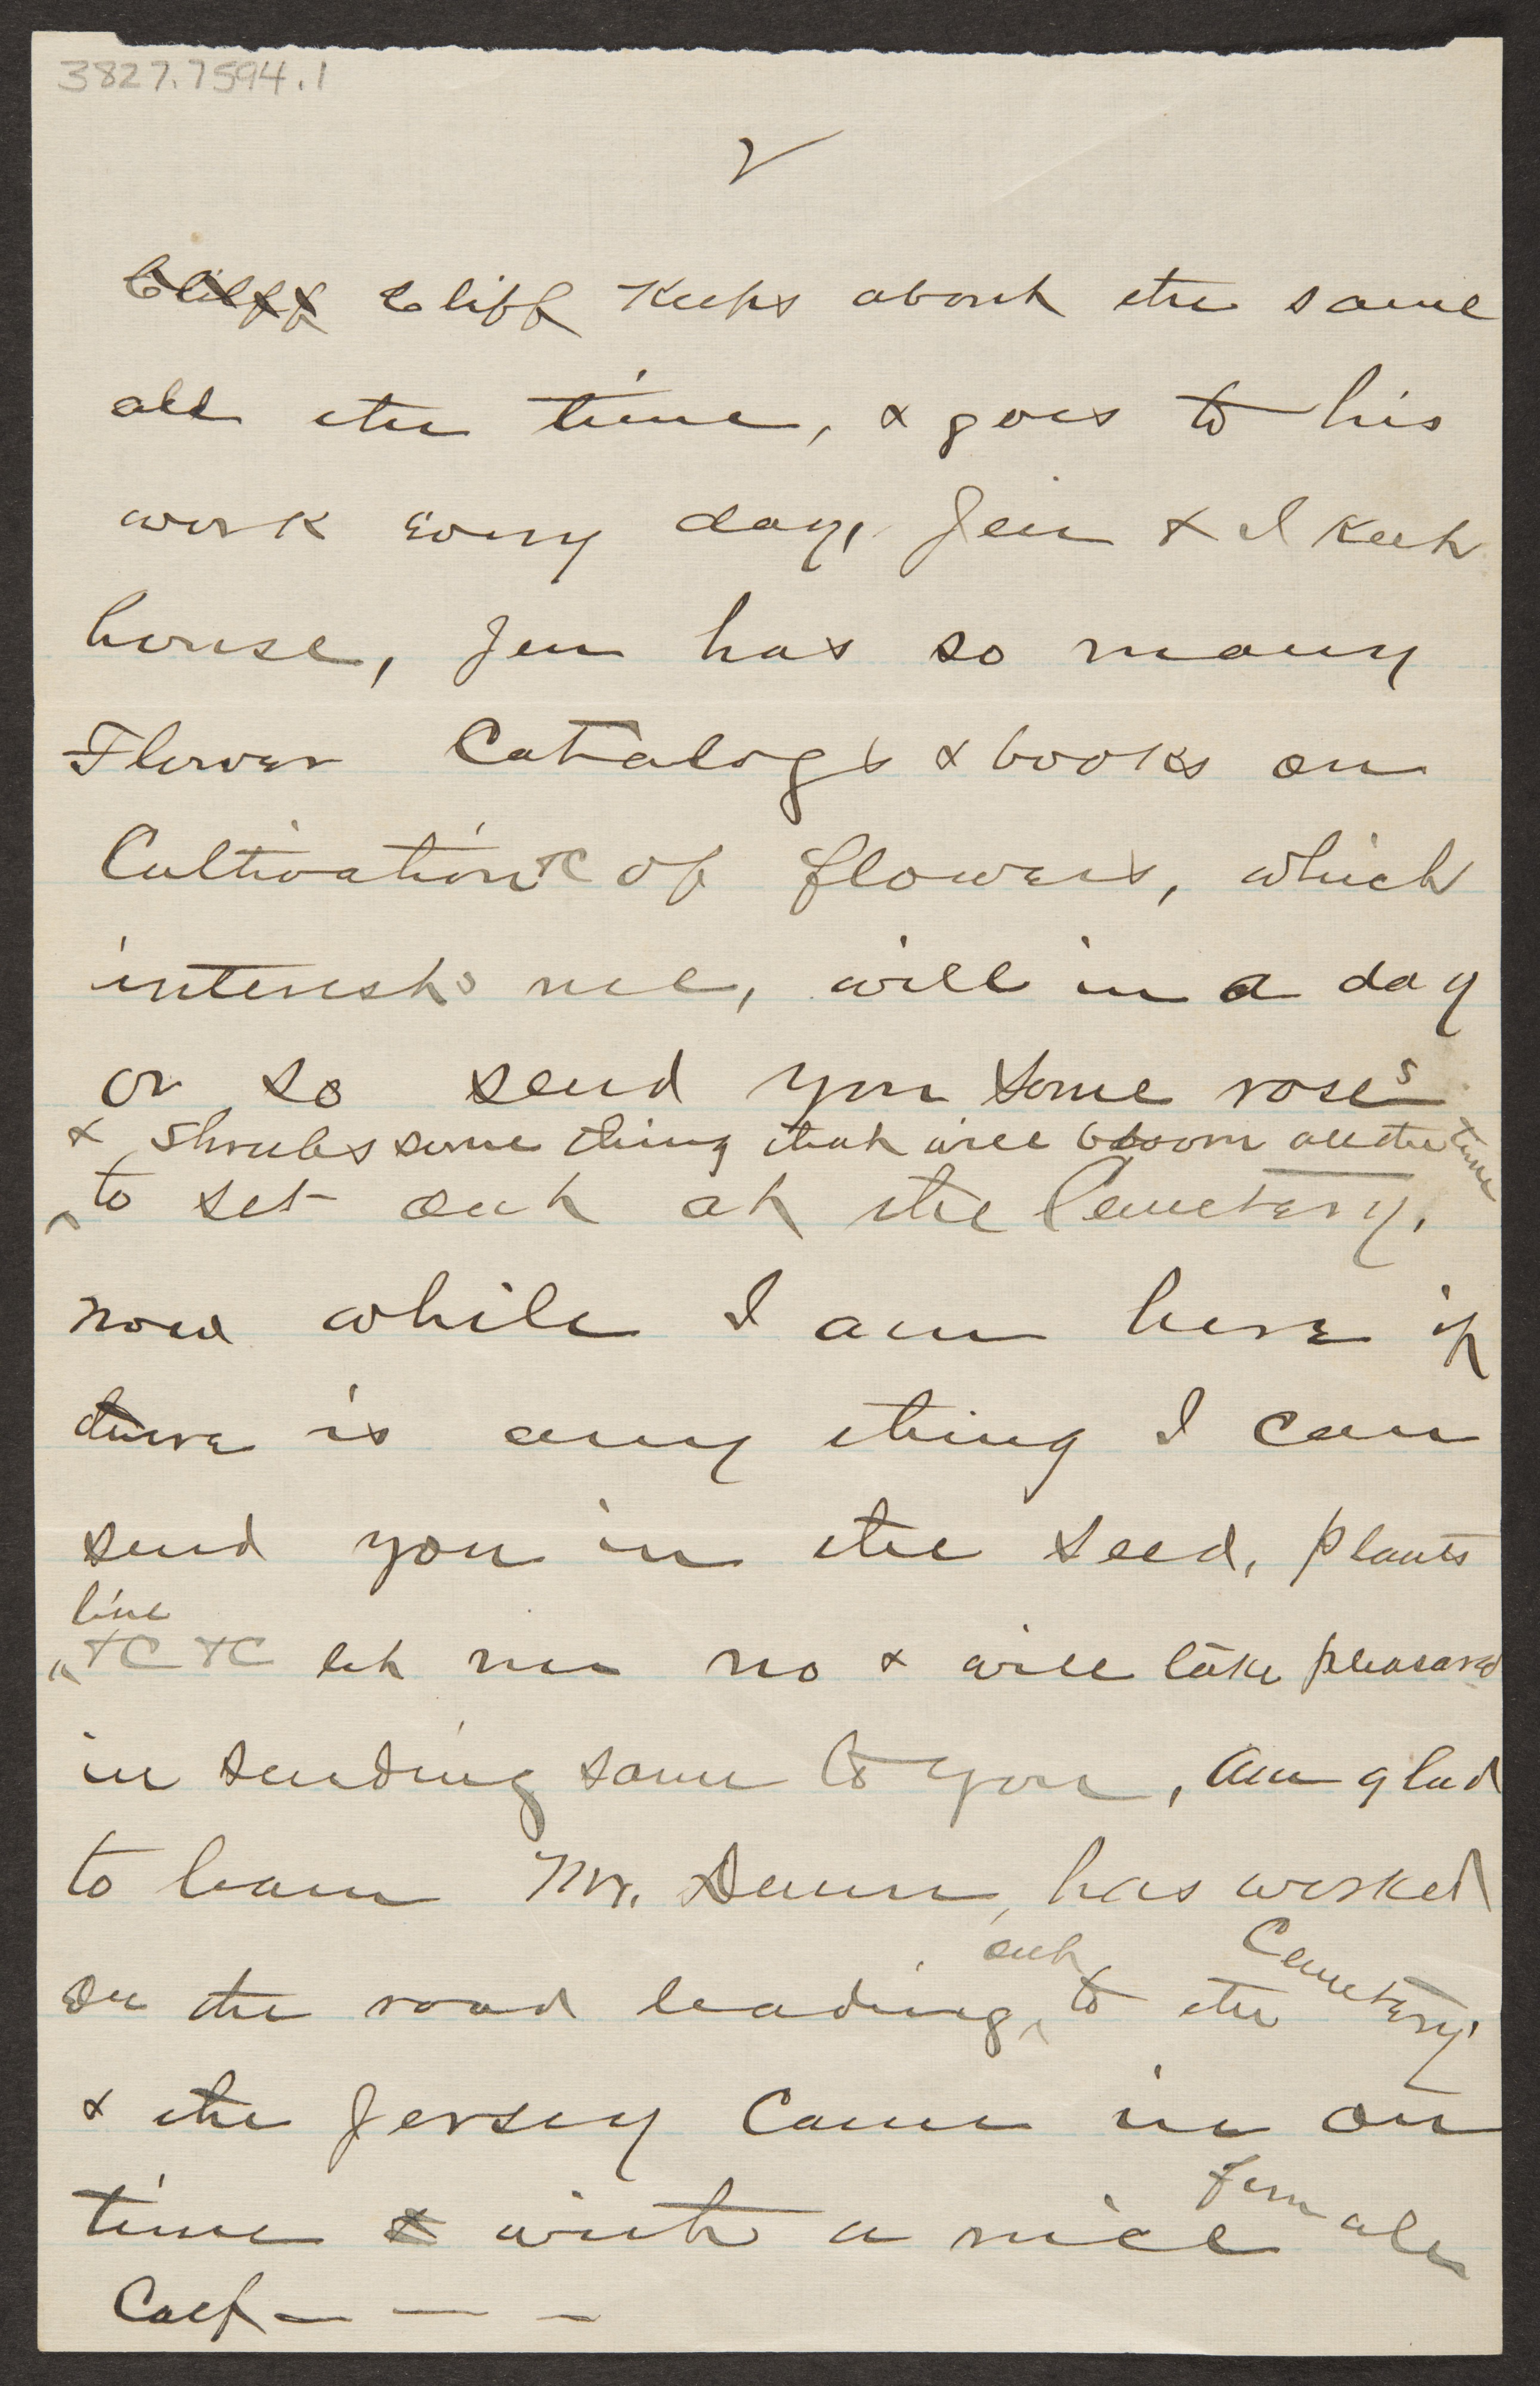 3827.7594.1
2
Cliff Cliff Keeps about the same
all the time, & goes to his
work every day, Jen & I Keep
house, Jen has so many
Flower Catalogs & books on
Cultivation &C of flowers, which
interests me, will in a day
or so send you some roses
& Shrubs some thing that will bloom all the time
to set out at the Cemetery.
now while I am here if
there is any thing I can
send you in the seed, plants
line
&C &C let me no & will take pleasure
in sending same to you, am glad
to learn Mr. Dunn has worked
out Cemetery,
on the road leading to the
& the Jersey Came in on
time & with a nice female
Calf — — —